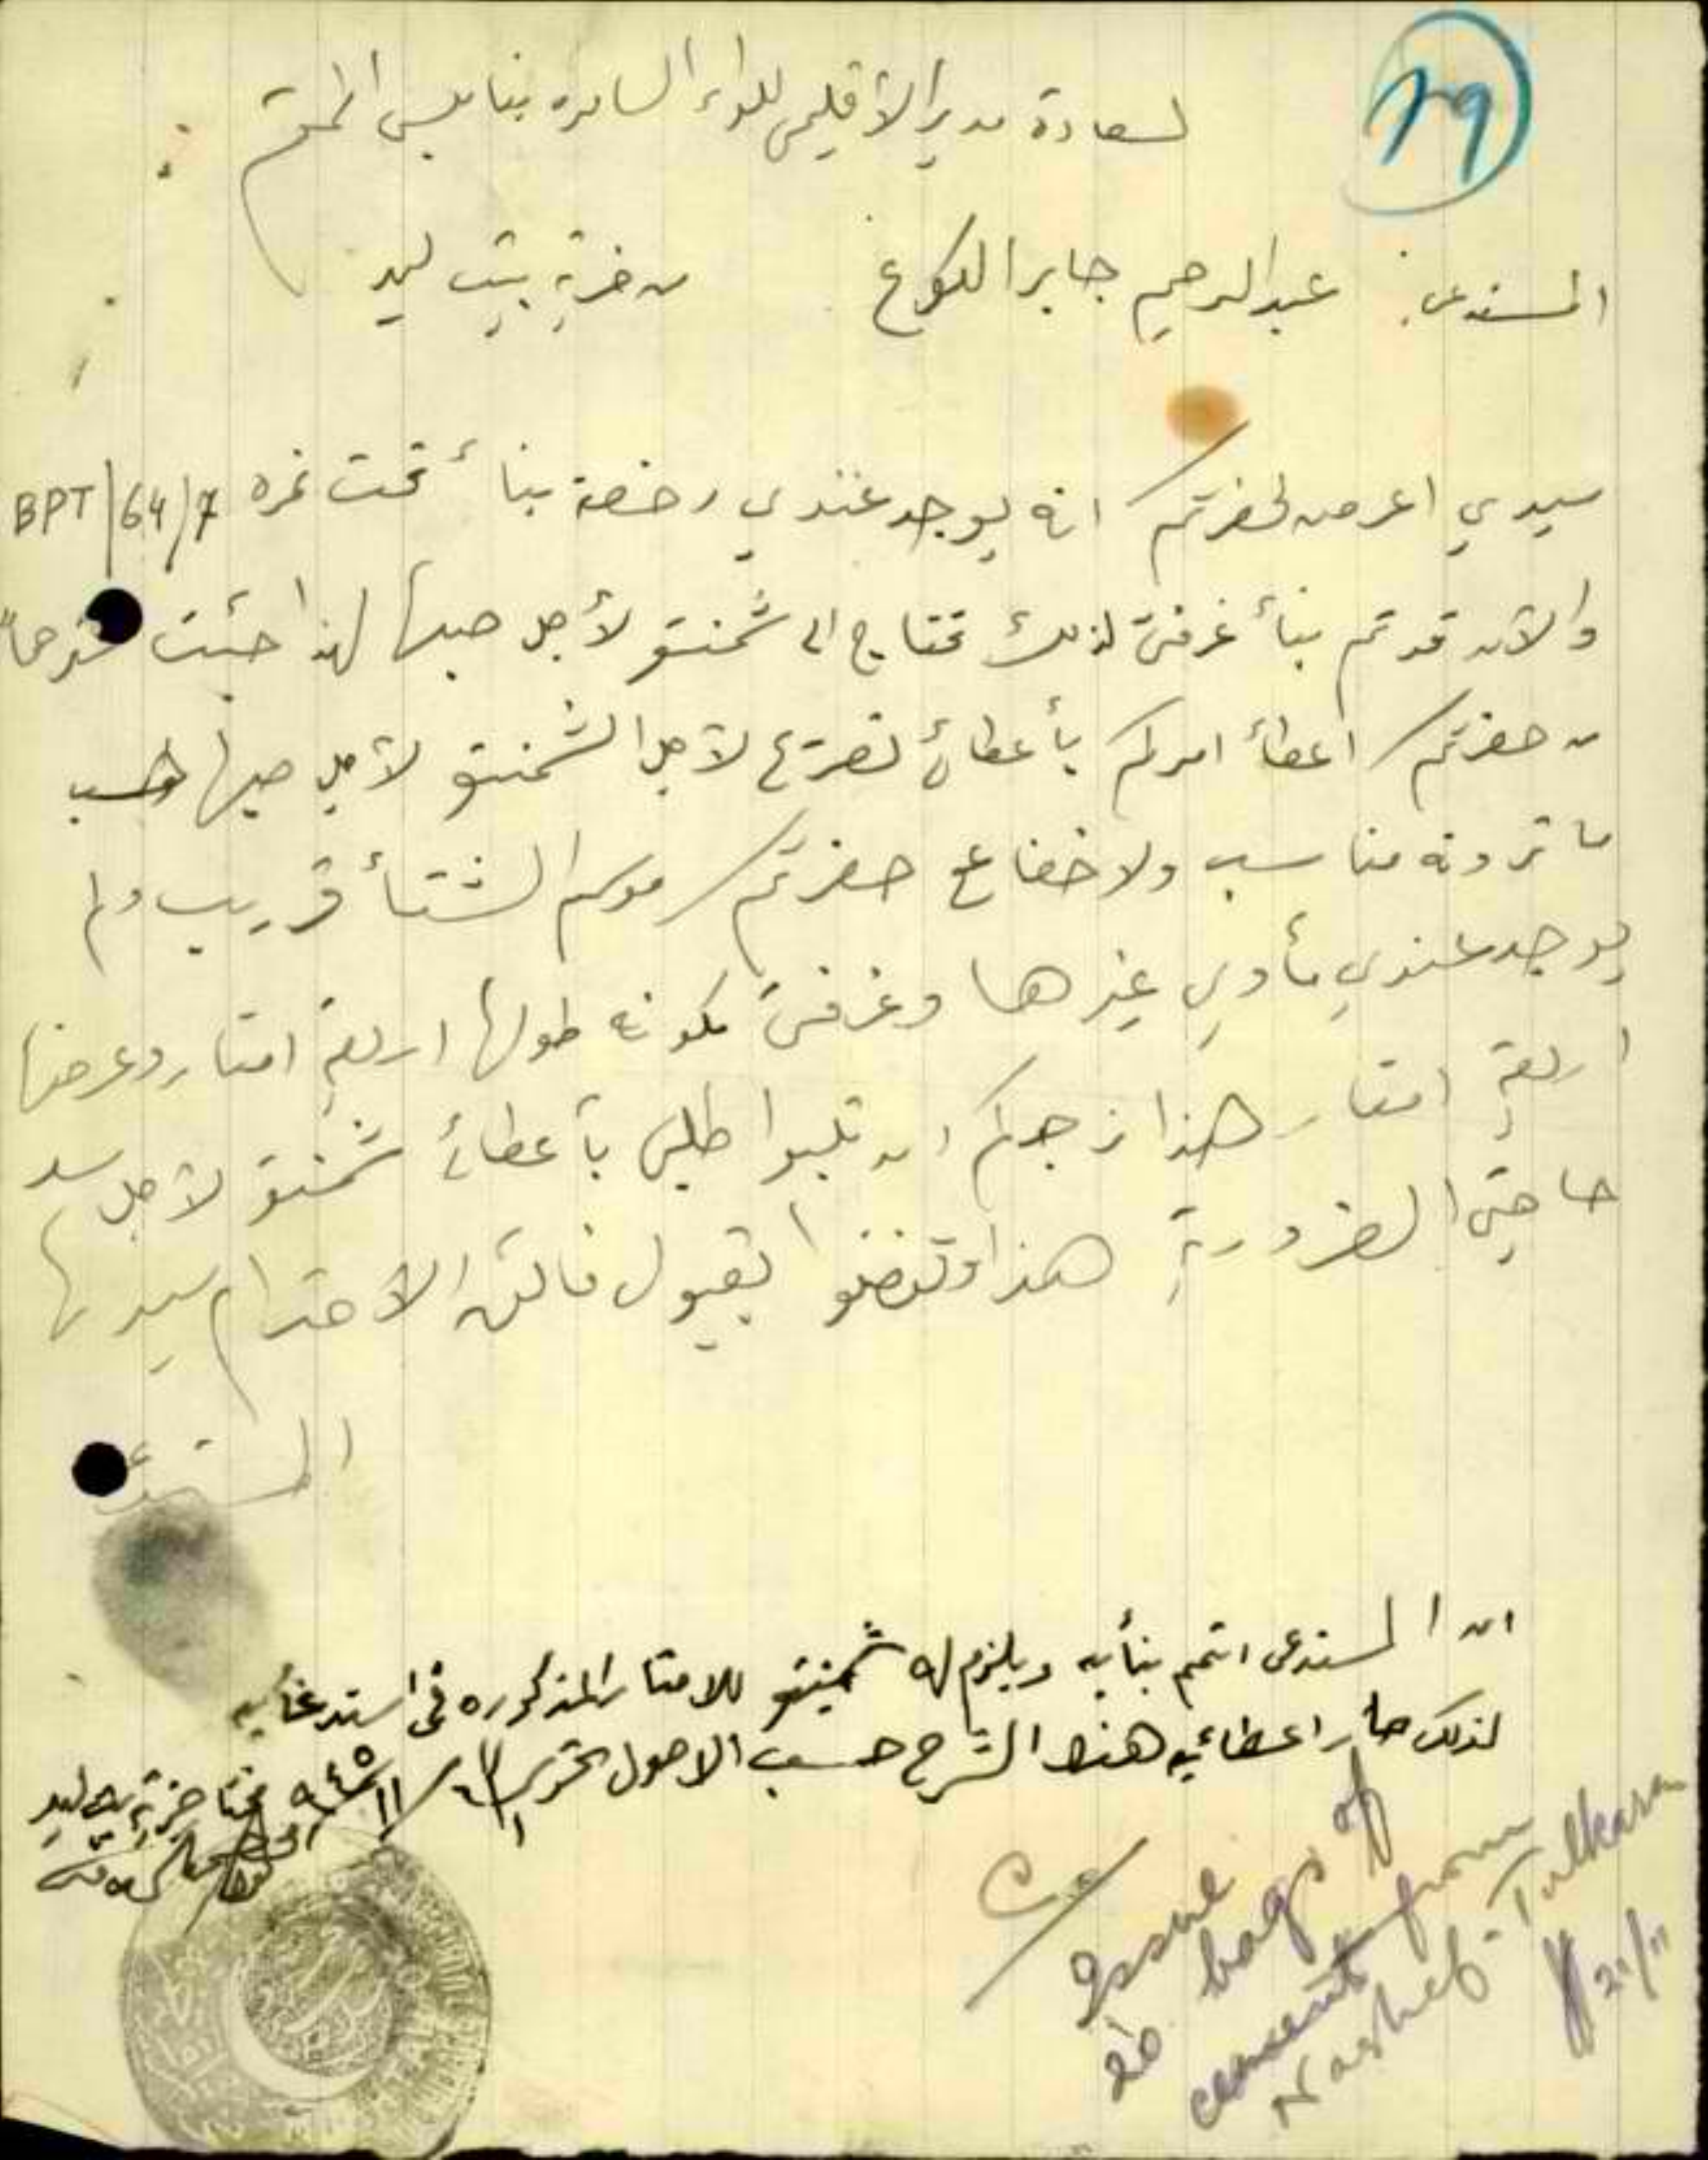 29
لسعادة مدير الأقليمي للواء السامره بنابلس المحترم
المستدعي: عبدالرحيم جابر الكوع من خربة بيت ليد
سيدي اعرض لحضرتكم انه يوجد عندي رخصة بنأ تحت نمره BPT/64/7
والآن قد تم بنأ غرفتي لذلك تحتاج الى شمنتو لأجل صبها لهذا جئت
من حضرتكم اعطأ امركم بأعطائي تصريح لأجل الشمنتو لأجل صبها حسب
ما ترونه مناسب ولا خفا ع حضرتكم موسم الشتأ قريب ولم
يوجد عندي مأوى غيرها وغرفتي مكونه طولها اربعة امتار وعرضها
اربعة امتار هذا نرجوكم ان تلبوا طلبي بأعطائي شمنتو لأجل سد
حاجتي الضرورية هذا وتفضلوا بقبول فائق الاحترام سيدي
المستدعي
ان المستدعي اتمم بنأيه ويلزم له شمينتو للامتار المذكوره في استدعائه
لذلك صار اعطائيه هذا الشرح حسب الاصول تحريرا ١١/ ٩٤٥ مختار خربة بيت ليد
C.C.
Issue
20 bags of
cement from
Nashef - Tulkarm
21/11